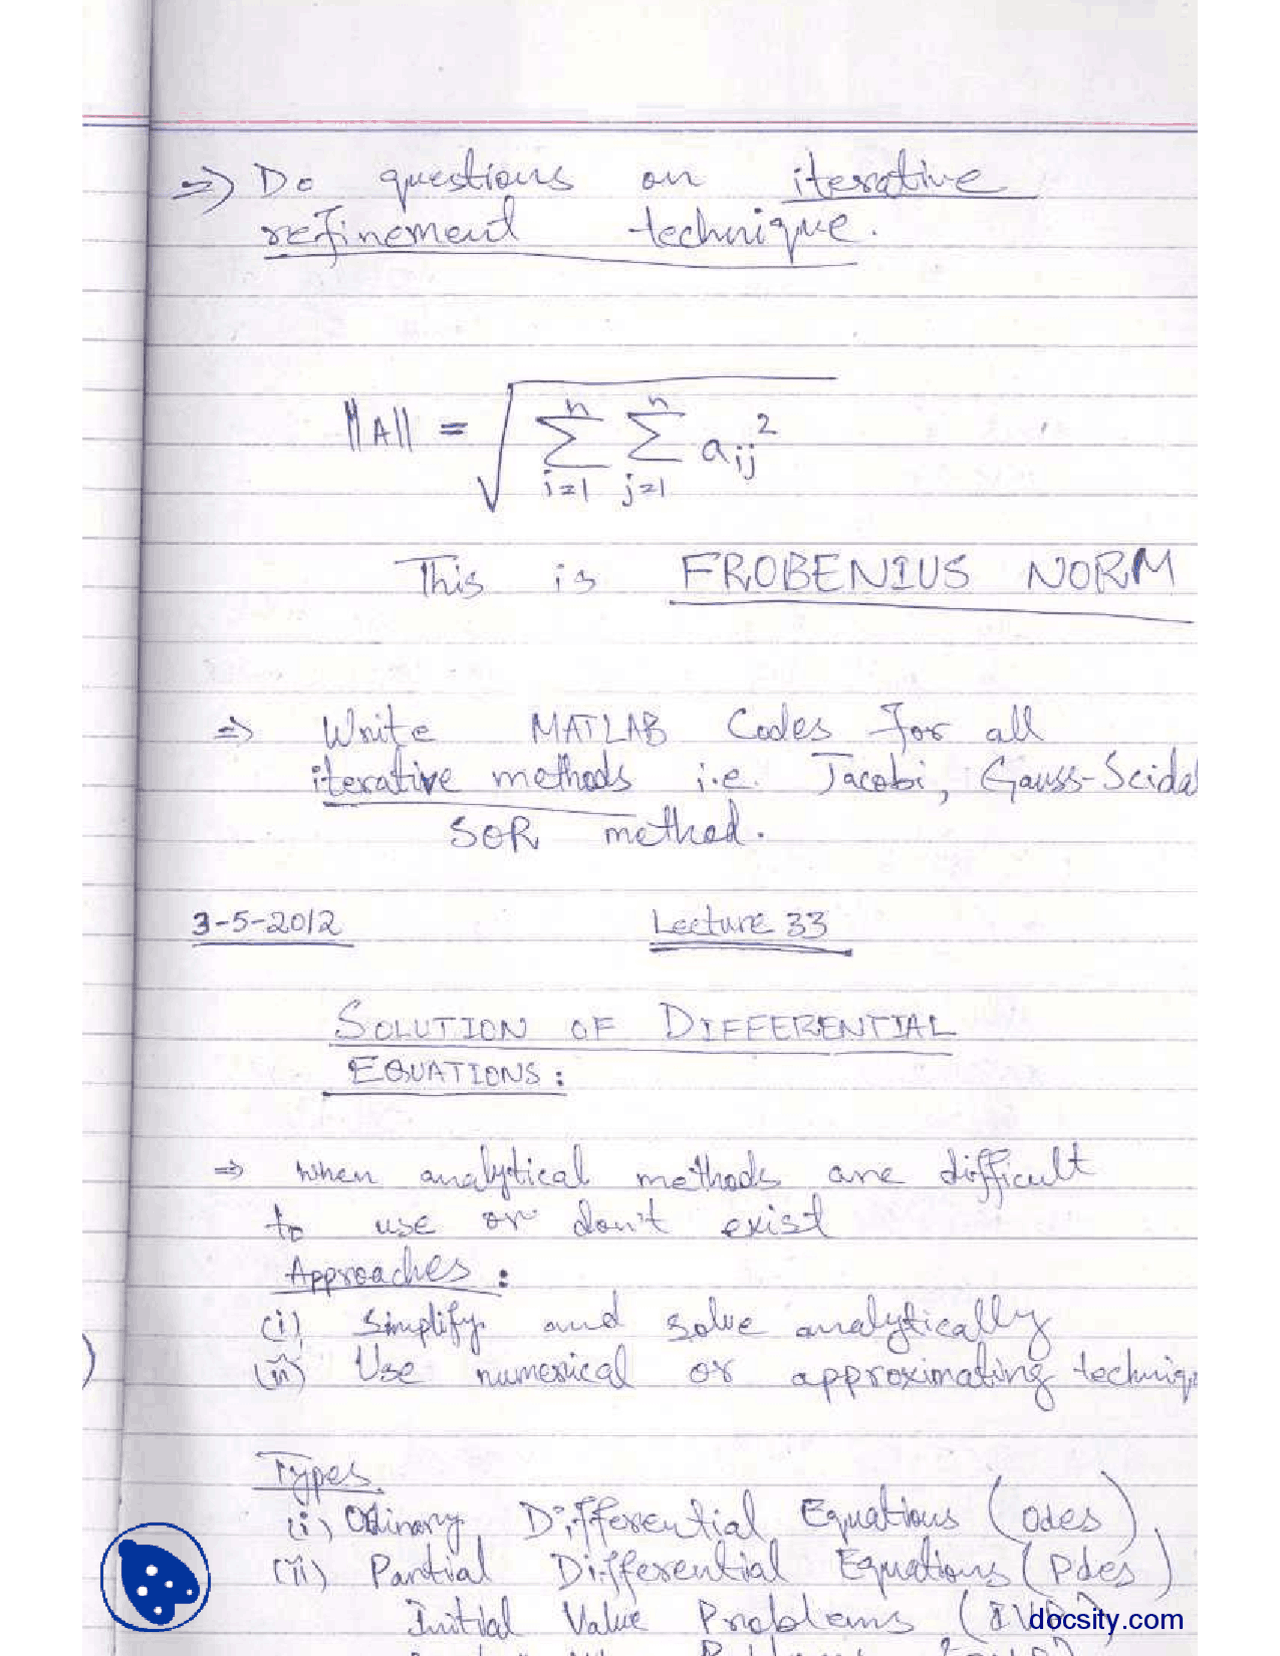 => Do questions on iterative
refinement technique.
||A|| = √ Σ Σ aij²
n n
i=1 j=1
This is FROBENIUS NORM
=> Write MATLAB Codes for all
iterative methods i.e. Jacobi, Gauss-Seidal
SOR method.
3-5-2012 Lecture 33
SOLUTION OF DIFFERENTIAL
EQUATIONS:
=> When analytical methods are difficult
to use or don't exist
Approaches:
(i) Simplify and solve analytically
(ii) Use numerical or approximating techniq
Types.
(i) Ordinary Differential Equations (Odes),
(ii) Partial Differential Equations (Pdes)
Initial Value Problems (IVP)
docsity.com